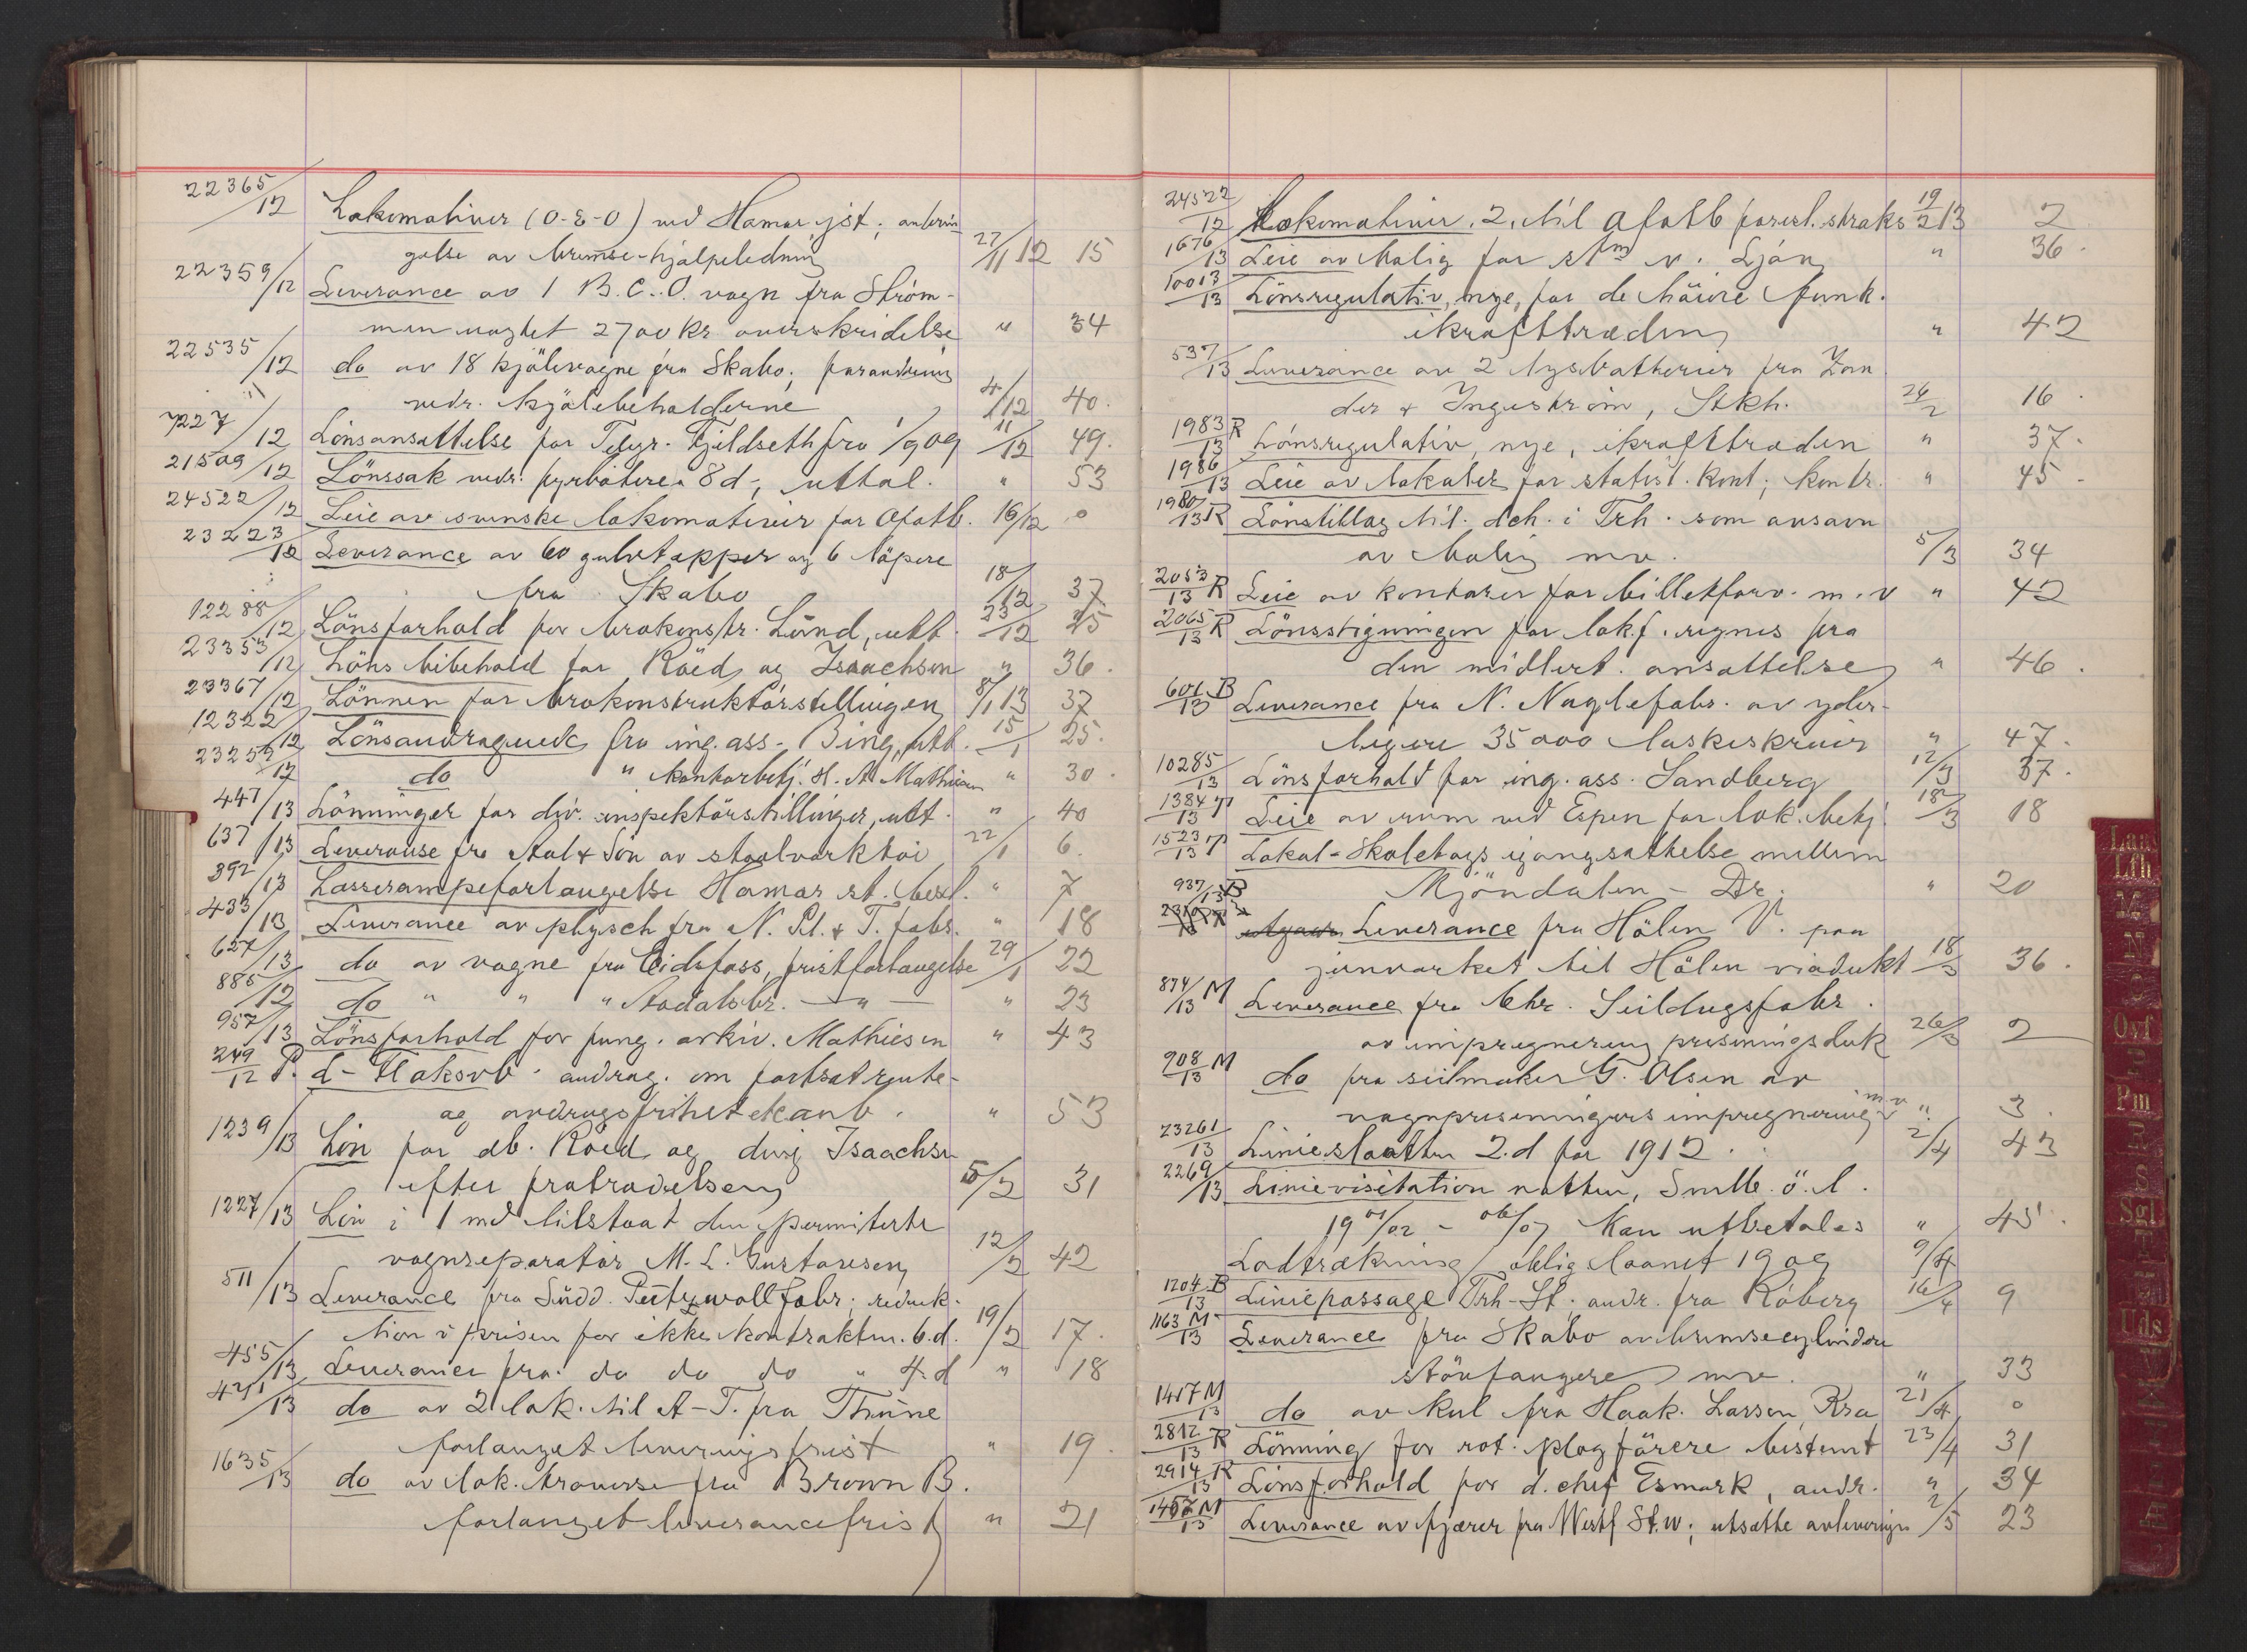 22365/12 Lokomotiver (0-8-0) ved Hamar jst; anbrin
gelse av bremse-hjælpeledning 27/11 12 15
22359/12 Leverance av 1 B.C.O. vogn fra Strøm-
men uagtet 2700 kr overskridelse " 34
22535/12 do av 18 kjölevogne fra Skabo; forandring
vedr. kjölebeholderne 4/12 40.
7227/12 Lönsansættelse for Telegr. Fjeldseth fra 1/9 09 11/12 49.
21509/12 Lönssak vedr. fyrbötere 8 d; uttal. " 53
24522/12 Leie av svenske lokomotiver for Ofotb. 16/12 0
23223/12 Leverance av 60 gulvtepper og 6 löpere
fra Skabo 18/12 37.
12288/12 Lönsforhold for brokonstr. Lund, utt. 23/12 25
23353/12 Löns bibehold for Röed og Isaachsen " 36.
23367/12 Lönnen for brokonstruktörstillingen 8/1 13 37
12322/12 Lönsandragende fra ing. ass. Bing, utt. 15/1 25.
23252/12 do " kontorbetj. H. A. Mathisen " 30.
447/13 Lönninger for div. inspektörstillinger, utt. " 40
637/13 Leveranse fra Aal & Sön av staalverktöi 22/1 6.
392/13 Lasserampeforlængelse Hamar st. besl. " 7
433/13 Leverance av plysch fra N. Pl. & T. fabr. " 18
627/13 do av vogne fra Eidsfoss, fristforlængelse 29/1 22
885/12 do " " " Aadalsbr. — " — " 23
957/13 Lönsforhold for fung. arkiv. Mathiesen " 43
249/12 P. L-Flaksvb. andrag. om fortsat rente-
og avdragsfrihet " 53
1239/13 Lön for db. Röed og Isaachsen
efter fratrædelsen 5/2 31
1227/13 Lön i 1 md tilstaat den permiterte
vognreparatör M. L. Gustavsen 12/2 42
511/13 Leverance fra Südd. Putzwollfabr; reduk-
tion i prisen for ikke kontraktm. b.d. 19/2 17.
455/13 Leverance fra do do do " 4.d " 18
421/13 do av 2 lok. til A-T. fra Thune
forlænget leveringsfrist " 19.
1635/13 do av lok. traverse fra Brown B.
forlænget leverancefrist " 21
24522/12 Lokomotiver, 2, til Ofotb foresl. straks 19/2 13 2
1676/13 Leie av bolig for stm v. Ljan " 36.
10013/13 Lönsregulativ, nye, for de höiere funk.
ikrafttræden " 42
537/13 Leverance av 2 lysbatterier fra Zan
der & Ingeström, Stkh. 26/2 16.
1983/13 R Lönsregulativ, nye, ikrafttræden " 37.
1986/13 Leie av lokaler for statist. kont; kontr. " 45.
1980/13 R Lönstillæg til dch. i Trh. som avsavn
av bolig mv. 5/3 34
2053/13 R Leie av kontorer for billetforv. m.v " 42
2065/13 R Lönsstigningen for lok.f. regnes fra
den midlert. ansættelse " 46.
601/13 B Leverance fra N. Naglefabr. av yder-
ligere 35000 laskeskruer " 47.
10285/13 Lönsforhold for ing. ass. Sandberg 12/3 37.
1384/13 T Leie av rum ved Espen for lok. betj. 18/3 18
1523/13 T Lokal-Skoletogs igangsættelse mellem
Mjöndalen - Dr. " 20
937/13 B Leverance fra Hölen V. paa
jernverket til Hölen viadukt 18/3 36.
874/13 M Leverance fra Chr. Seildugsfabr.
av impregnering presenningsduk 26/3 2
908/13 M do fra seilmaker G. Olsen av
vognpresenningers impregnering m.v " 3.
23261/13 Linieslaatten 2.d for 1912. 2/4 43
2269/13 Linievisitation natten, Smlb. ö. l.
19 01/02 - 06/07 kan utbetales " 45.
Lodtrækning / oblig. laanet 1909 9/4
1204/13 B Liniepassage Trh-St; andr. fra Röberg 16/4 9
1163/13 M Leverance fra Skabo av bremsecylindre
stövfangere mv. " 33
1417/13 M do av kul fra Haak. Larsen, Kra 21/4 0
2812/13 R Lönning for rot. plogförere bestemt 23/4 31
2914/13 R Lönsforhold for d. chef Esmark, andr. " 34
1457/13 M Leverance av fjærer fra Westf St.w; utsatte avleveringen 2/5 23
Lfh
M
N
O
Ovf
P
Pm
R
S
Sgl
T
U
Uds
Æ